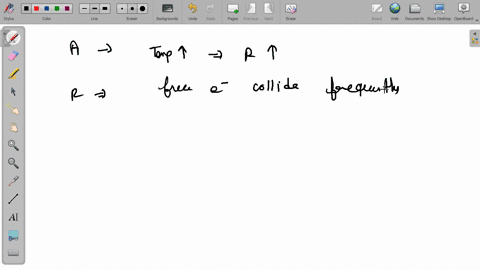 Board
Stylus
Color
Line
Backgrounds
Undo
Redo
Pages
Previous
Next
Erase
Board
Web
Documents
Show Desktop
OpenBoard
A → Temp ↑ → R ↑
R ⇒ free e⁻ collide frequently